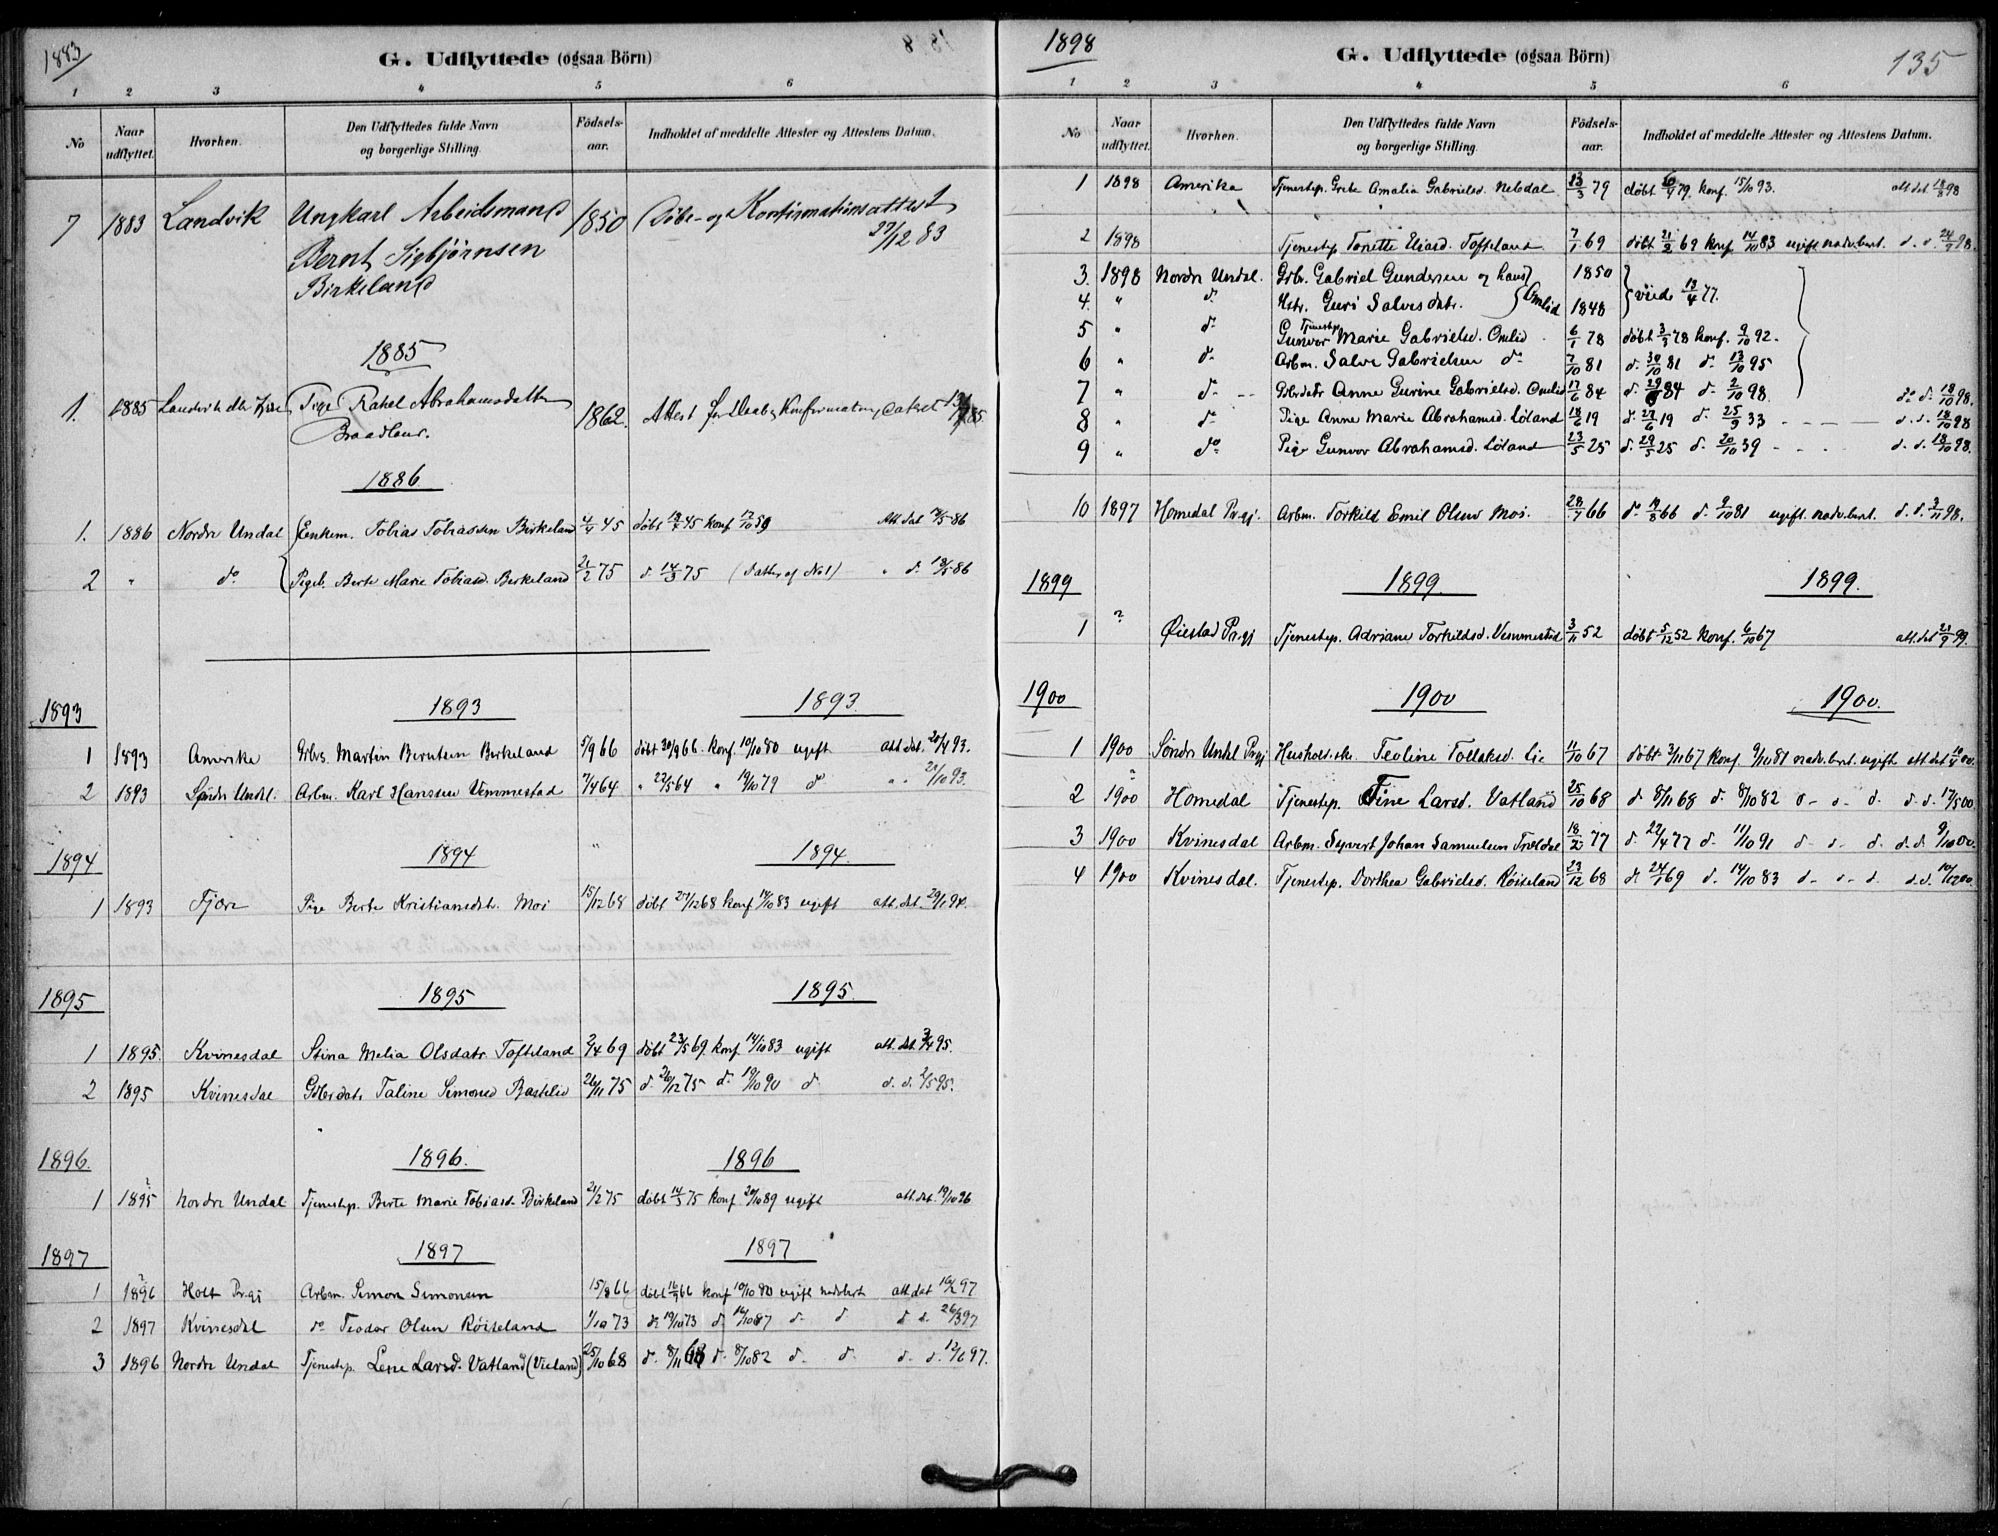 1883
G. Udflyttede (ogsaa Börn)
1 2 3 4 5 6
No Naar udflyttet. Hvorhen. Den Udflyttedes fulde Navn og borgerlige Stilling. Födsels-aar. Indholdet af meddelte Attester og Attestens Datum.
7 1883 Landvik Ungkarl Arbeidsmand 1850 Döbe- og Konfirmationsattest
Bernt Sigbjørnsen 27/12 83
Birkeland
1885
1. 1885 Landvik Pige Rakel Abrahamsdatter 1862. Attest for Daab, Konfirmation
1886.
1. 1886 Nordre Undal Enkem. Tobias Tobiassen Birkeland 4/4 45 döbt 45 konf 59 Att. dat 86
2 " do Pigeb. Berte Marie Tobiasd. Birkeland 21/2 75 d. 14/3 75 (Datter af No 1) " d. 86
1893 1893 1893.
1 1893 Amerika Grbr. Martin Berntsen Birkeland 5/9 66 döbt 30/9 66. konf 10/10 80 ugift att. dat. 20/4 93.
2 1893 Søndre Undal. Arbm. Karl Hanssen Vemmestad 7/4 64 " 22/5 64 " 19/10 79 do " " 21/10 93.
1894 1894 1894.
1 1893 Fjære Pige Berte Kristiansdt. Moi 15/12 68 döbt 27/12 68 konf 14/10 83 ugift att. dat. 29/1 94.
1895 1895 1895.
1 1895. Kvinesdal Stina Melia Olsdatr. Tofteland 2/4 69 döbt 23/5 69. konf 14/10 83 ugift att. dat. 3/4 95.
2 1895 Kvinesdal Gbrdatr Taline Simonsd 26/11 75 d. 26/12 75 d. 19/10 90 d. d. d. 2/5 95.
1896. 1896. 1896
1 1895 Nordre Undal Tjenestep. Berte Marie Tobiasd. Birkeland 21/2 75 döbt 14/3 75 konf 20/10 89 ugift att. dat. 19/10 96
1897 1897 1897
1 1896 Holt Prgj Arbm. Simon Simonsen 15/8 66 döbt 16/9 66 konf 10/10 80 ugift att. dat 16/2 97
2 1897 Kvinesdal do Teodor Olsen Röiseland 1/10 73 d. 19/10 73 d. 16/10 87 d. d. d. d. 26/3 97
3 1896 Nordre Undal Tjenestep. Lene Larsd. Vatland (Vieland) 25/10 68 d. 8/11 68 d. 8/10 82 d. d. d. d. 12/6 97.
1898
G. Udflyttede (ogsaa Börn)
135
1 2 3 4 5 6
No Naar udflyttet. Hvorhen. Den Udflyttedes fulde Navn og borgerlige Stilling. Födsels-aar. Indholdet af meddelte Attester og Attestens Datum.
1 1898 Amerika Tjenestep. Grete Amalia Gabrielsd. Nebdal 23/3 79 döbt 79. konf. 15/10 93. att. dat 18/8 98
2 1898 Tjenestep Tonette Eliasd. Tofteland 7/1 69 döbt 21/2 69 konf 14/10 83 ugift nadv.ber. d. d. 24/9 98.
3. 1898 Nordre Undal. Grbr. Gabriel Gundersen og hans 1850
4. " d. Hstr. Guri Salvesdatr. Omlid 1848 viede 13/4 77.
5 " do Tjenestep Gunvor Marie Gabrielsd. Omlid 6/1 78 döbt 3/3 78 konf. 9/10 92.
6 " do Arbm. Salve Gabrielsen do 7/10 81 d. 30/10 81 d. 13/10 95
7 " d. Gbrdatr Anne Gurine Gabrielsd. Omlid 17/6 84 d. 84 d. 2/10 98. do d. 18/10 98.
8 " do Pige Anne Marie Abrahamsd. Löland 18/6 19 d. 27/6 19 d. 25/9 33 d. d. 18/10 98
9 " do Pige Gunvor Abrahamsd. Löland 23/5 25 d. 29/5 25 d. 20/10 39 d. d. 18/10 98.
10 1897 Homedal Prgj. Arbm. Torkild Emil Olsen Moi. 28/7 66 d. 19/8 66 d. 9/10 81 ugift. nadv.ber. d. d. 3/11 98.
1899 1899. 1899.
1 ? Øiestad Prgj Tjenestep. Adriane Torkildsd. Vemmestad 3/11 52 döbt 5/12 52 konf. 6/10 67 att. dat 21/9 99.
1900 1900 1900.
1 1900 Søndre Undal Prgj Teoline Tollaksd. Lie 11/10 67 döbt 3/11 67 konf. 9/10 81 nadv.ber. ugift att. dat 00.
2 1900 Homedal Tjenestep. Tine Larsd. Vatland 25/10 68 d 8/11 68 d. 8/10 82 d. d. d. d. d. 17/5 00.
3 1900 Kvinesdal Arbm. Syvert Johan Samuelsen Trældal 18/2 77 d. 22/4 77 d. 11/10 91 d. d. d. d. d. 9/10 00.
4 1900 Kvinesdal. Tjenestep. Dorthea Gabrielsd. Röiseland 23/12 68 d. 24/1 69 d. 14/10 83 d. d. d. d. d. 10/12 00.